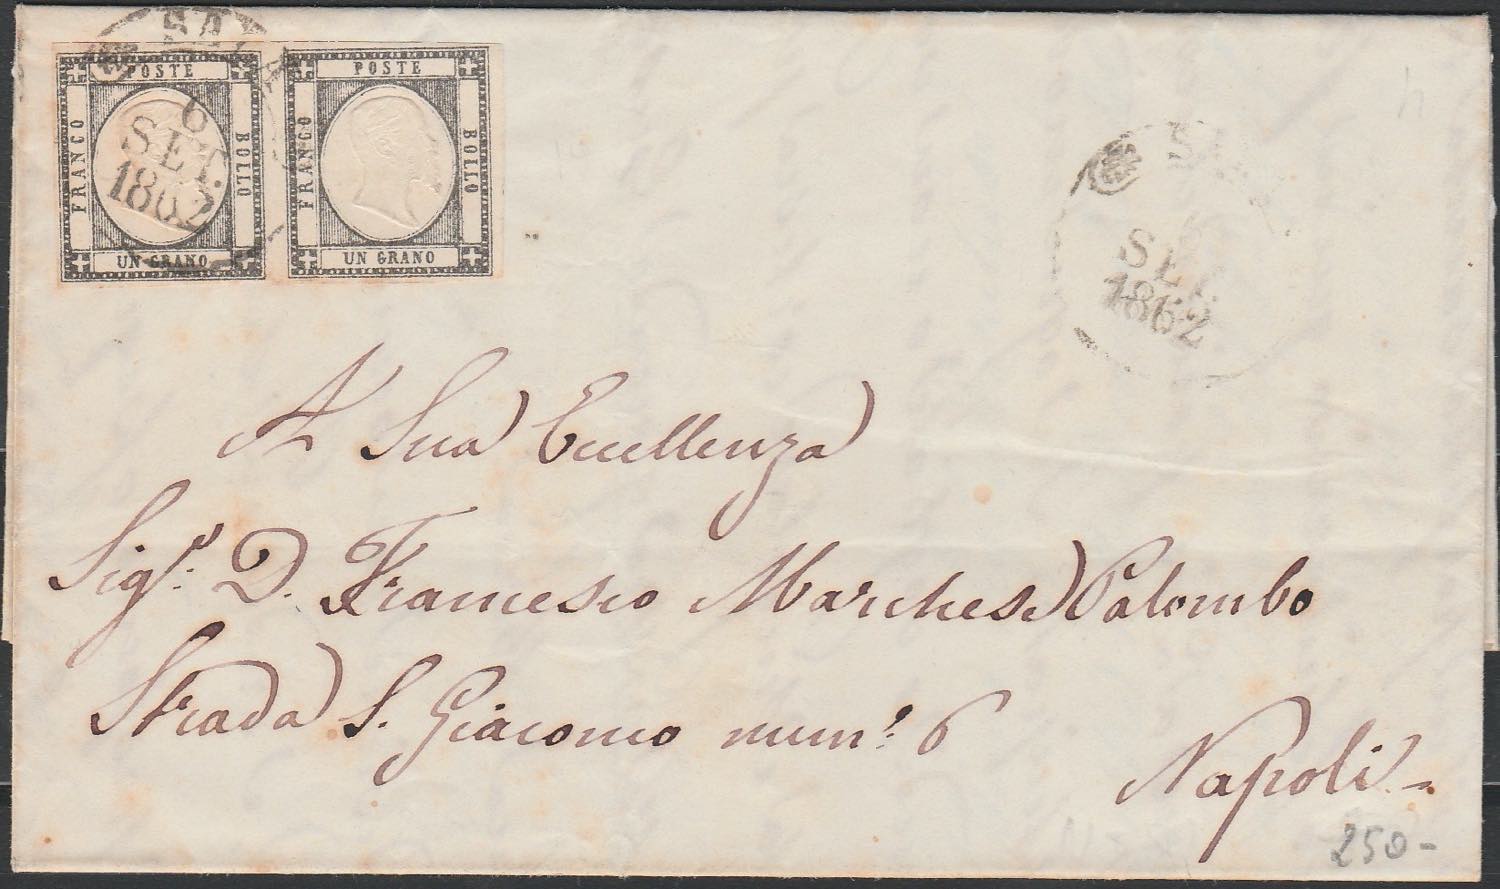 POSTE
FRANCO
BOLLO
UN GRANO
6
SET.
1862
POSTE
FRANCO
BOLLO
UN GRANO
6
SET.
1862
A Sua Eccellenza
Sigr. D. Francesco Marchese Palombo
Strada S. Giacomo numo. 6
Napoli
250-